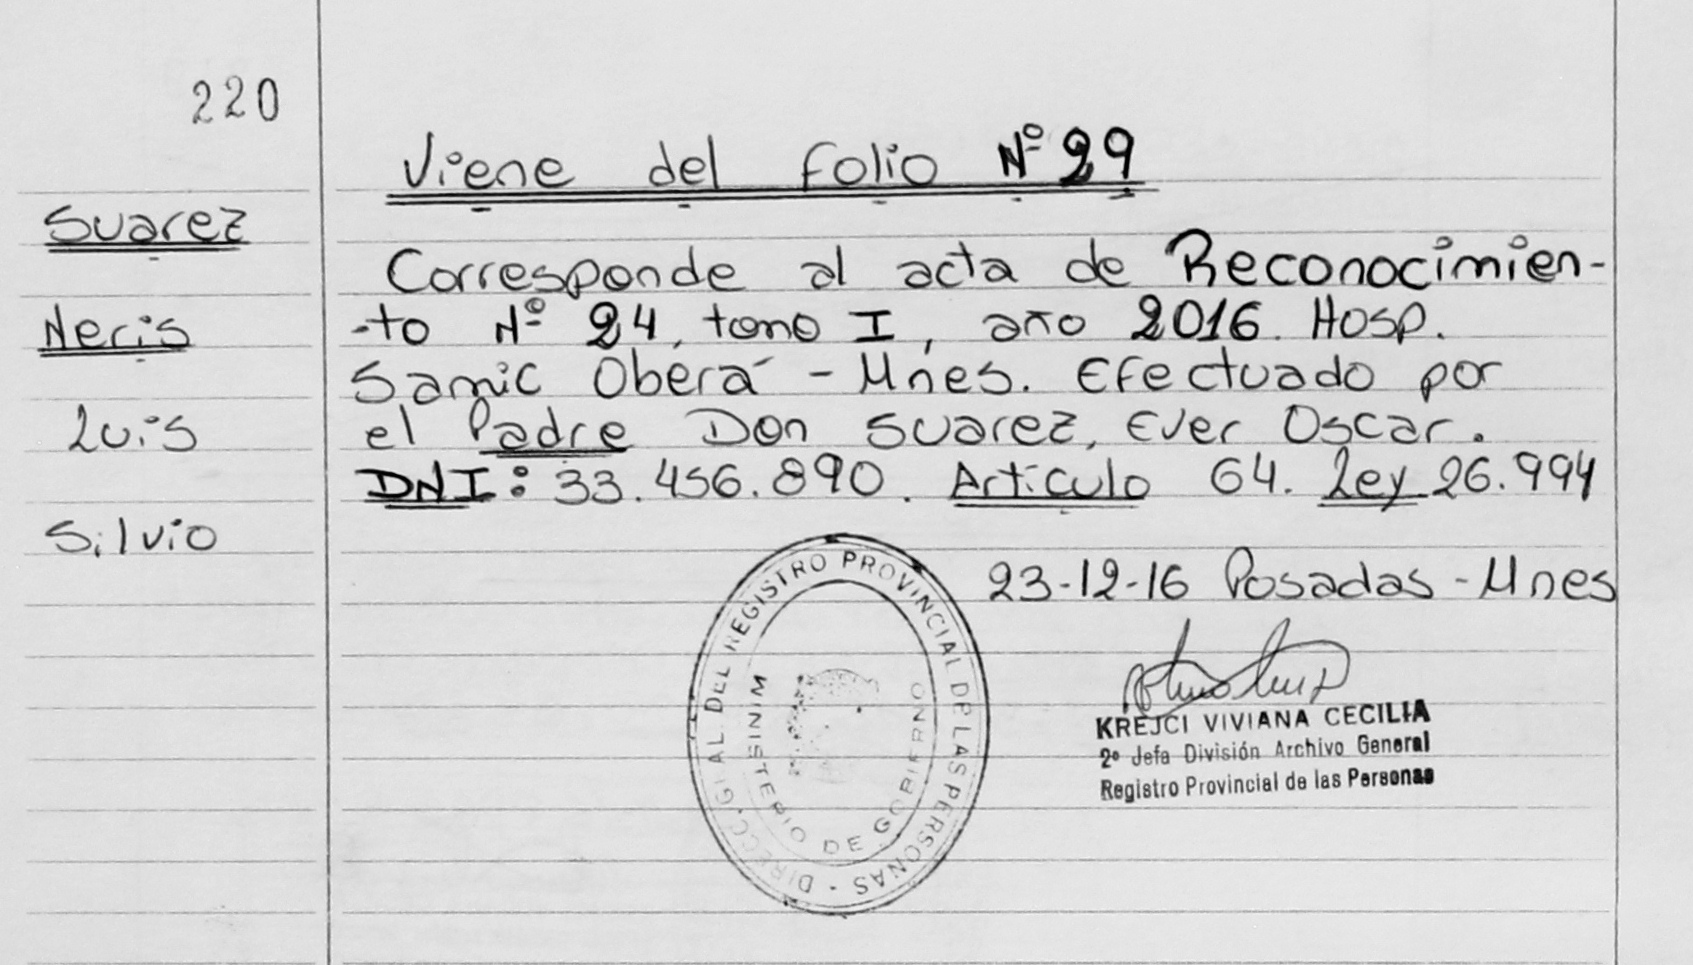 220
Viene del Folio Nº 29
Suarez
Neris
Luis
Silvio
Corresponde al acta de Reconocimien-
-to Nº 24, tomo I, año 2016. Hosp.
Samic Oberá - Mnes. Efectuado por
el Padre Don Suarez, Ever Oscar.
DNI: 33.456.890. Artículo 64. Ley 26.994
23-12-16 Posadas - Mnes
DIRECC. GRAL. DEL REGISTRO PROVINCIAL DE LAS PERSONAS
MINISTERIO DE GOBIERNO
KREJCI VIVIANA CECILIA
2º Jefa División Archivo General
Registro Provincial de las Personas